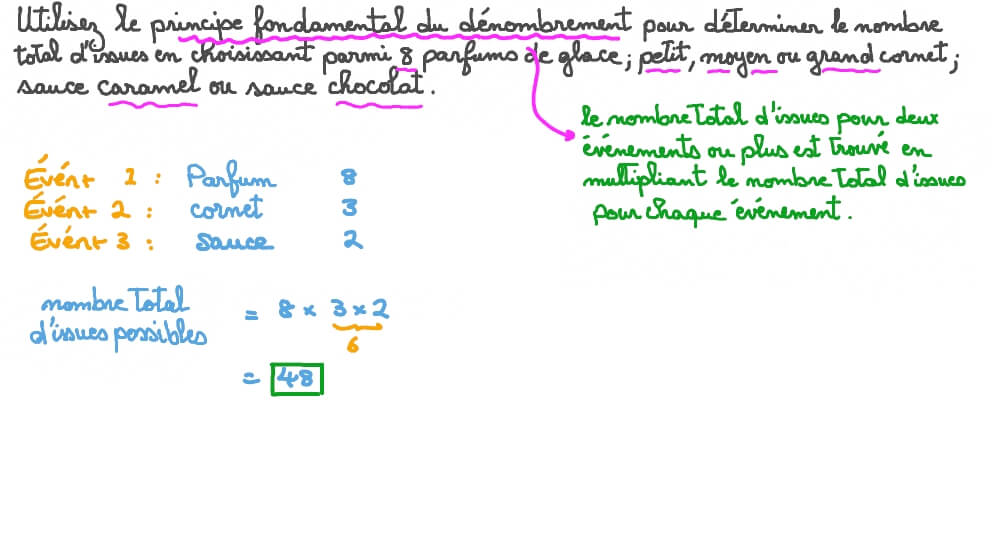 Utilisez le principe fondamental du dénombrement pour déterminer le nombre
total d'issues en choisissant parmi 8 parfums de glace; petit, moyen ou grand cornet;
sauce caramel ou sauce chocolat.
le nombre total d'issues pour deux
événements ou plus est trouvé en
multipliant le nombre total d'issues
pour chaque événement.
Évént 1 : Parfum 8
Évént 2 : cornet 3
Évént 3 : sauce 2
nombre total
d'issues possibles
= 8 × 3 × 2
6
= 48